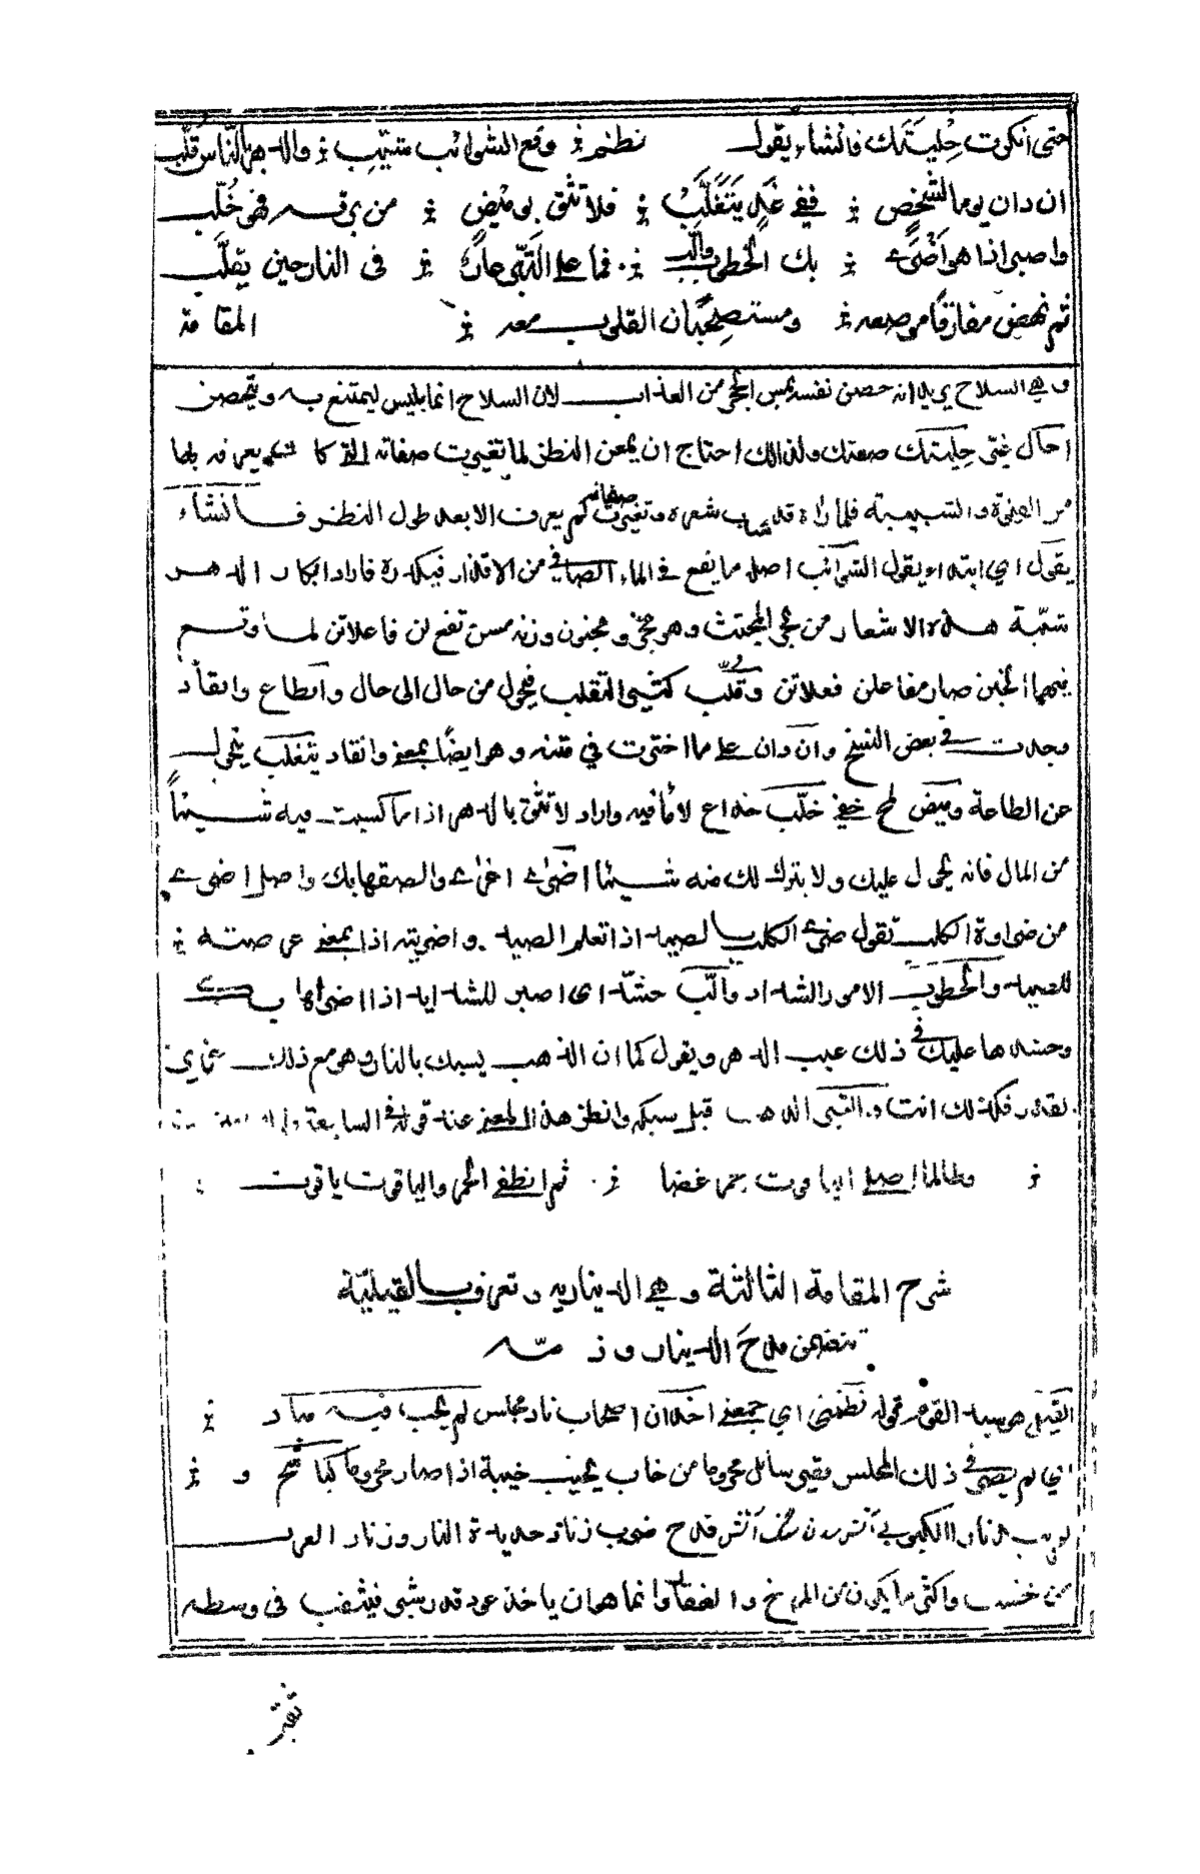 حتى انكرت حليتك فانشاء يقول نظم وقع الشوائب شيّب والدهر بالناس قلّب
ان دان يوما لشخصٍ ففي غدٍ يَتَغَلَّبْ فلا تثق بوميض من برقه فهو خُلّب
واصبر اذا هو أضْرَى بك الخطوب وألّب فما على التبر عارٌ في النار حين يقلَّب
ثم نهض مفارقًا موضعه ومستصحبًا القلوب معه المقامة
وهي السلاح يريد انه حصن نفسه من العذاب لان السلاح انما يلبس ليمتنع به ويتحصن
احال غيّر حليتك صفتك ولذالك احتاج ان يمعن النظر لما تغيرت صفاته التي كان يعرفه بها
من الفتوة والشبيبة فلما راه قد شاب شعره وتغيرت صفاته لم يعرف الا بعد طول النظر فانشاء
يقول اي ابتداء يقول الشوائب اصله ما يقع في الماء الصافي من الاقذار فيكدره فاراد اكدار الدهر
هذه الاشعار من المجتث وهو مجزو ومخبون وزنه مستفع لن فاعلاتن لما وقع
فيهما الخبن صار مفاعلن فعلاتن وقُلّب كثير التقلب يحول من حال الى حال وأطاع وانقاد
وجدت في بعض النسخ وان دان على ما اخترت في متنه وهو ايضًا بمعنى وانقاد يتغلب يتحول
عن الطاعة وميض لمح خفي خلّب خداع لا ماء فيه واراد لا تثق بالدهر اذا ما كسبت فيه شيئاً
من المال فانه يحول عليك ولا يترك لك منه شيئا اضرى اغرى والصقها بك واصل اضرى
من ضراوة الكلب تقول ضري الكلب بالصيد اذا تعلم الصيد واضريته اذا بمعنى عرضته
للصيد والخطوب الامور الشداد وألّب حشد اى اصبر للشدايد اذا اضراها بك
وحشدها عليك في ذلك عيب الدهر ويقول كما ان الذهب يسبك بالنار وهو مع ذلك
فكذلك انت والتبر الذهب قبل سبكه وانظر هذا المعنى عند قوله في السابعة
وطالما اصلى الياقوت جمر غضا ثم انطفى الجمر والياقوت ياقوت
شرح المقامة الثالثة وهي الديناريه وتعرف بالقيلية
تتضمن مدح الدينار وذمه
القيل هو سيد القوم قوله نظمني اي جمعني اخدان اصحاب ناد مجلس لم يخب فيه مناد
اي لم يصر في ذلك المجلس فقير سائل محروما من خاب يخيب خيبة اذا صار محروما كبا و
قدح ضرب زناد حديدة النار وزناد العرب
من خشب واكثر ما يكون من المرخ والعفار وانما هو ان ياخذ عود قدر شبر فيثقب في وسطه